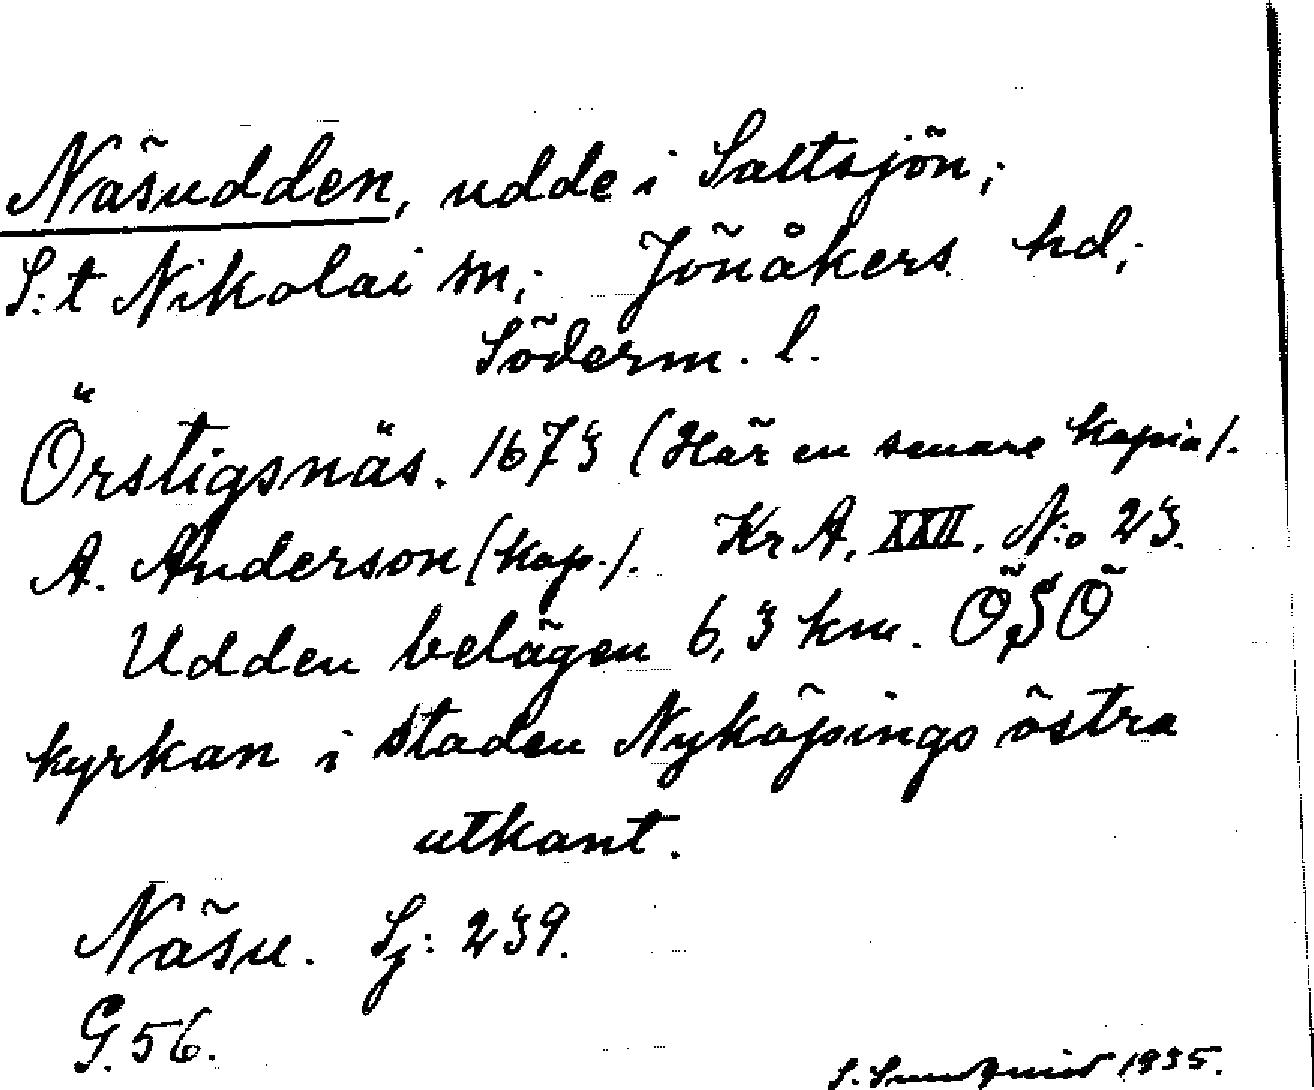 Näsudden, udde i Saltsjön;
S:t Nikolai sn; Jönåkers hd;
Söderm. l.
Örstigsnäs. 1673 (Här en senare kopia).
A. Anderson (kop.). Kr A, XXII, N:o 23.
Udden belägen 6,3 km. ÖSÖ
kyrkan i staden Nyköpings östra
utkant.
Näsu. Sj: 239.
G. 56.
S. 1935.